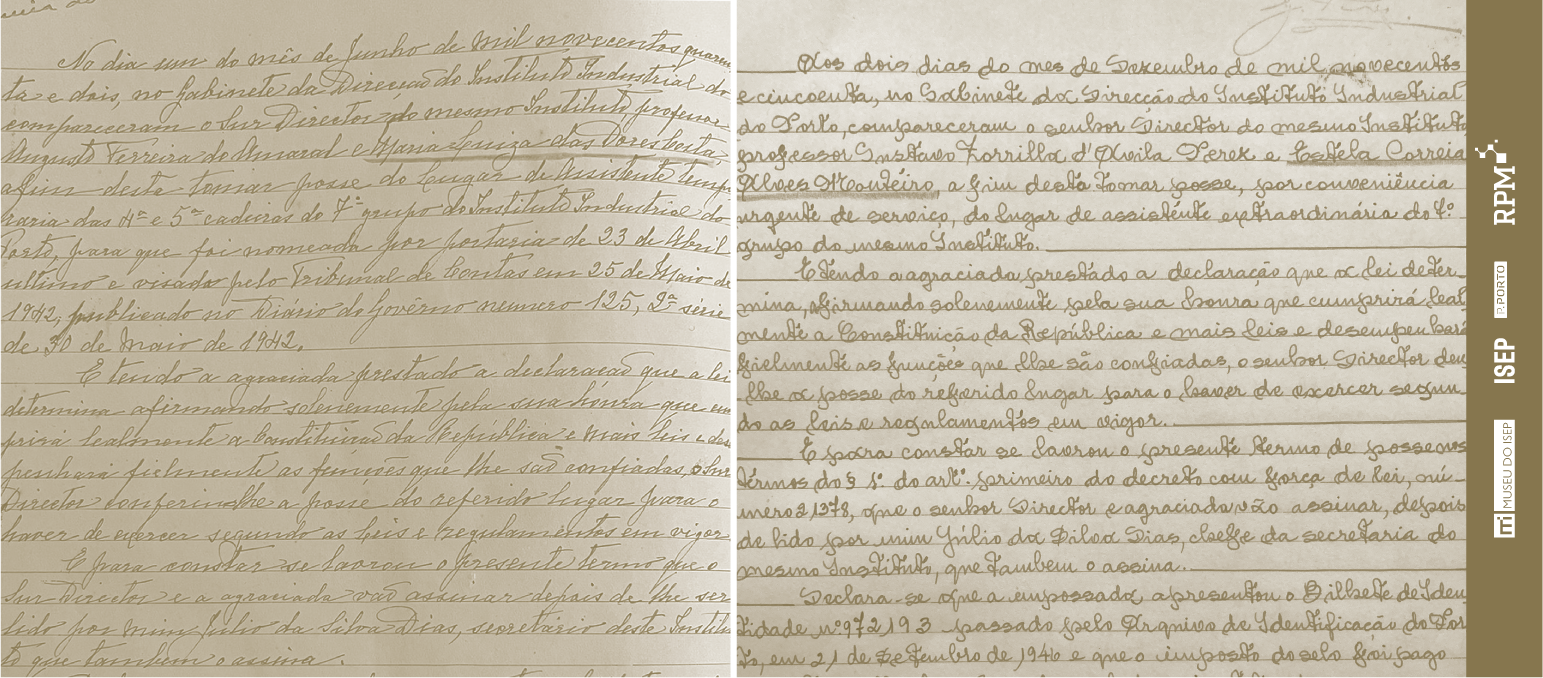 No dia um do mês de Junho de mil novecentos quaren
ta e dois, no Gabinete da Direcção do Instituto Industrial do
compareceram o Snr Director do mesmo Instituto, professor
Augusto Ferreira do Amaral e Maria Luiza das Dores
afim desta tomar posse do lugar de Assistente tempo
raria das 4ª e 5ª cadeiras do 7º grupo do Instituto Industrial do
Porto, para que foi nomeada por portaria de 23 de Abril
ultimo e visada pelo Tribunal de Contas em 25 de Maio de
1942, publicado no Diário do Govêrno numero 125, 2ª série
de 30 de Maio de 1942.
E tendo a agraciada prestado a declaração que a lei
determina afirmando solenemente pela sua hónra que cum
prirá lealmente a Constituição da República e mais leis e desem
penhará fielmente as funções que lhe são confiadas, o Snr
Director conferiu-lhe a posse do referido lugar para o
haver de exercer segundo as leis e regulamentos em vigor
E para constar se lavrou o presente termo que o
Snr Director e a agraciada vão assinar depois de lhe ser
lido por mim Júlio da Silva Dias, secretário deste Institu
to que tambem o assina.
Aos dois dias do mes de Dezembro de mil novecentos
e cincoenta, no Gabinete da Direcção do Instituto Industrial
do Porto, compareceram o senhor Director do mesmo Instituto
professor Gustavo Zorrilla d'Avila Perez e Estela Correia
Alves Monteiro, a fim desta tomar posse, por conveniência
urgente de serviço, do lugar de assistente extraordinária do 4º
grupo do mesmo Instituto.
E tendo a agraciada prestado a declaração que a lei deter-
mina, afirmando solenemente pela sua honra que cumprirá leal
mente a Constituição da República e mais leis e desempenhará
fielmente as funções que lhe são confiadas, o senhor Director deu
-lhe a posse do referido lugar para o haver de exercer segun-
do as leis e regulamentos em vigor.
E para constar se lavrou o presente termo de posse nos
termos do § 1º do artº primeiro do decreto com força de lei, nú-
mero 21378, que o senhor Director e agraciada vão assinar, depois
de lido por mim Júlio da Silva Dias, cheffe da secretaria do
mesmo Instituto, que tambem o assina.
Declara se que a empossada apresentou o Bilhete de Iden
tidade nº 972193 passado pelo Arquivo de Identificação do Por
to, em 21 de Setembro de 1946 e que o imposto do selo foi pago
RPM
P.PORTO
ISEP
MUSEU DO ISEP